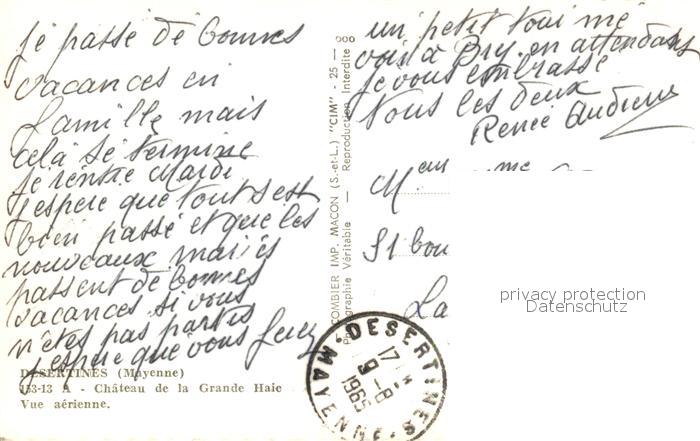 Je passe de bonnes
vacances en
famille mais
cela se termine
je rentre Mardi
j'espere que tout s'est
bien passé et que les
nouveaux mariés
passent de bonnes
vacances si vous
n'êtes pas partis
j'espere que vous ferez
un petit tour me
voir à Bry. en attendant
je vous embrasse
tous les deux
Renée
M eur me
St
La
COMBIER IMP. MACON (S.-et-L.) "CIM" - 25 —
Photographie Véritable — Reproduction Interdite
DESERTINES (Mayenne)
153-13 A - Château de la Grande Haie
Vue aérienne.
DESERTINES
MAYENNE
17 H.
9-8
1965
privacy protection
Datenschutz